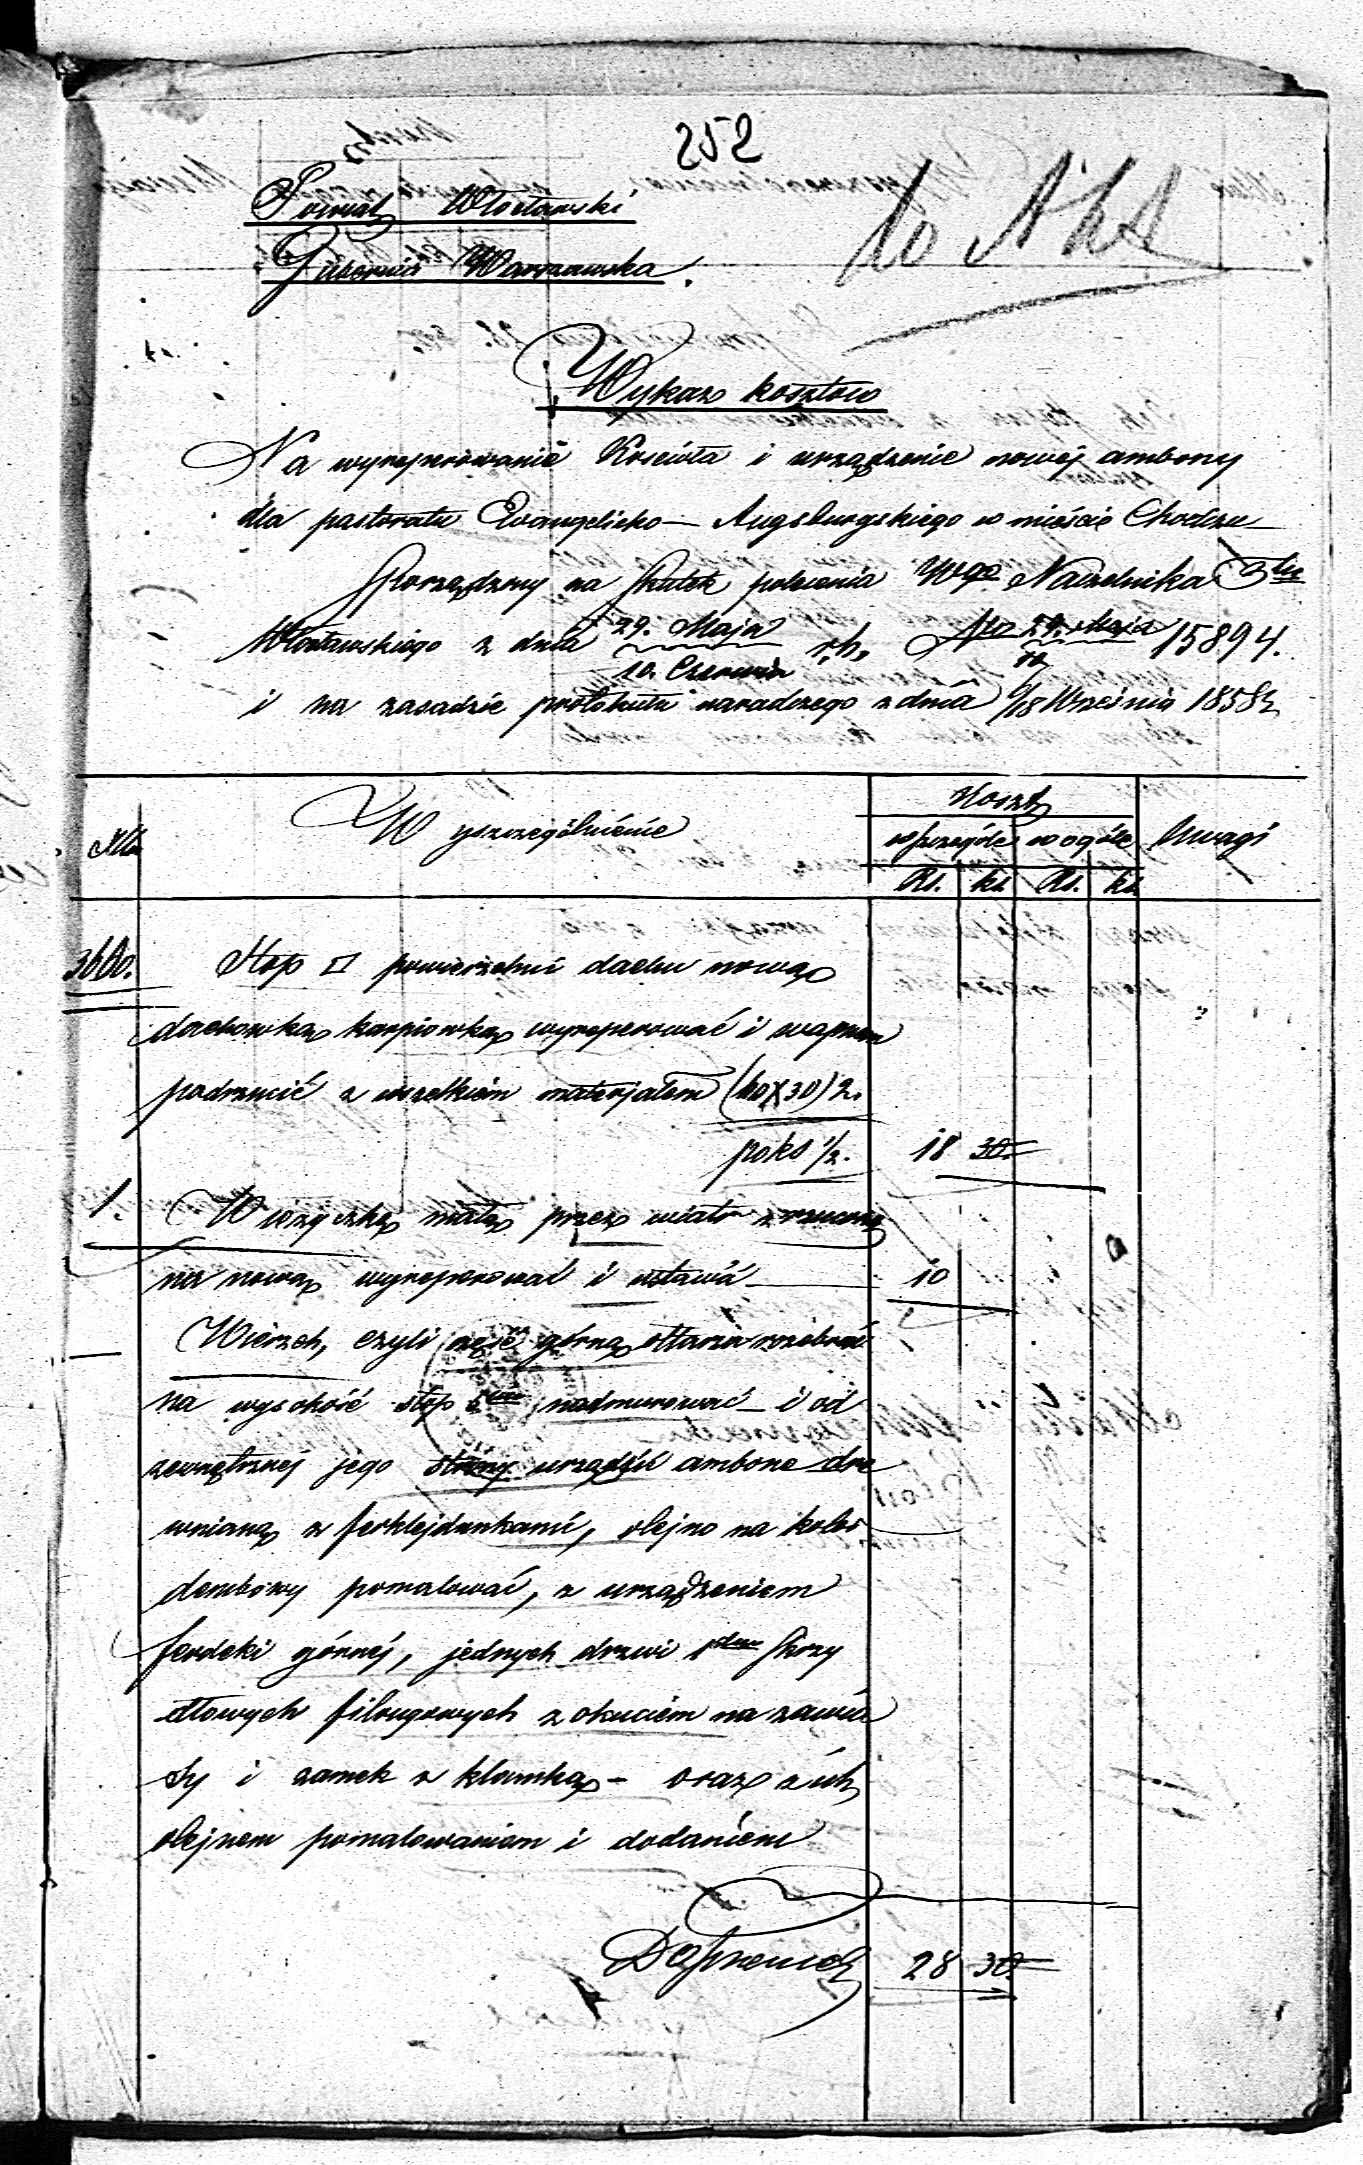 252
do Akt
Powiat Włocławski
Gubernia Warszawska.
Wykaz kosztow
Na wyreperowanie Kościoła i urządzenie nowéj ambony
dla pastoratu Ewangelicko – Augsburgskiego w mieście Chodczu
Sporządzony na skutek polecenia Wgo Naczelnika Ptu
Włocławskiego z dnia 29. Maja / 10. Czerwca r. b. No 15894.
i na zasadzie protokułu naradczego z dnia 6/18 Września 1858 r.
Koszt
No Wyszczególnienie w szczególe w ogóle Uwagi
Rs. ks. Rs. ks.
3600. Stop □ powierzchni dachu nową
dachowką karpiowką wyreperować i wapnem
podrzucić z wszelkiem materjałem (60x30)2.
po ks 1/2. 18 30
1. Wieżyczkę małą przez wiatr zrzuconą
na nową wyreperować i ustawić 10
Wierzch, czyli część górną ołtarza rozebrać
na wysokość stop nadmurować i od
zewnętrznéj jego strony urządzić ambonę dre
wnianą z ferklejdunkami, olejno na kolor
dembowy pomalować, z urządzeniem
ferdeki górnéj, jednych drzwi skrzy
dłowych filungowych z okuciem na zawia
sy i zamek z klamką – oraz z ich
olejnem pomalowaniem i dodaniem
Do przenies. 28 30